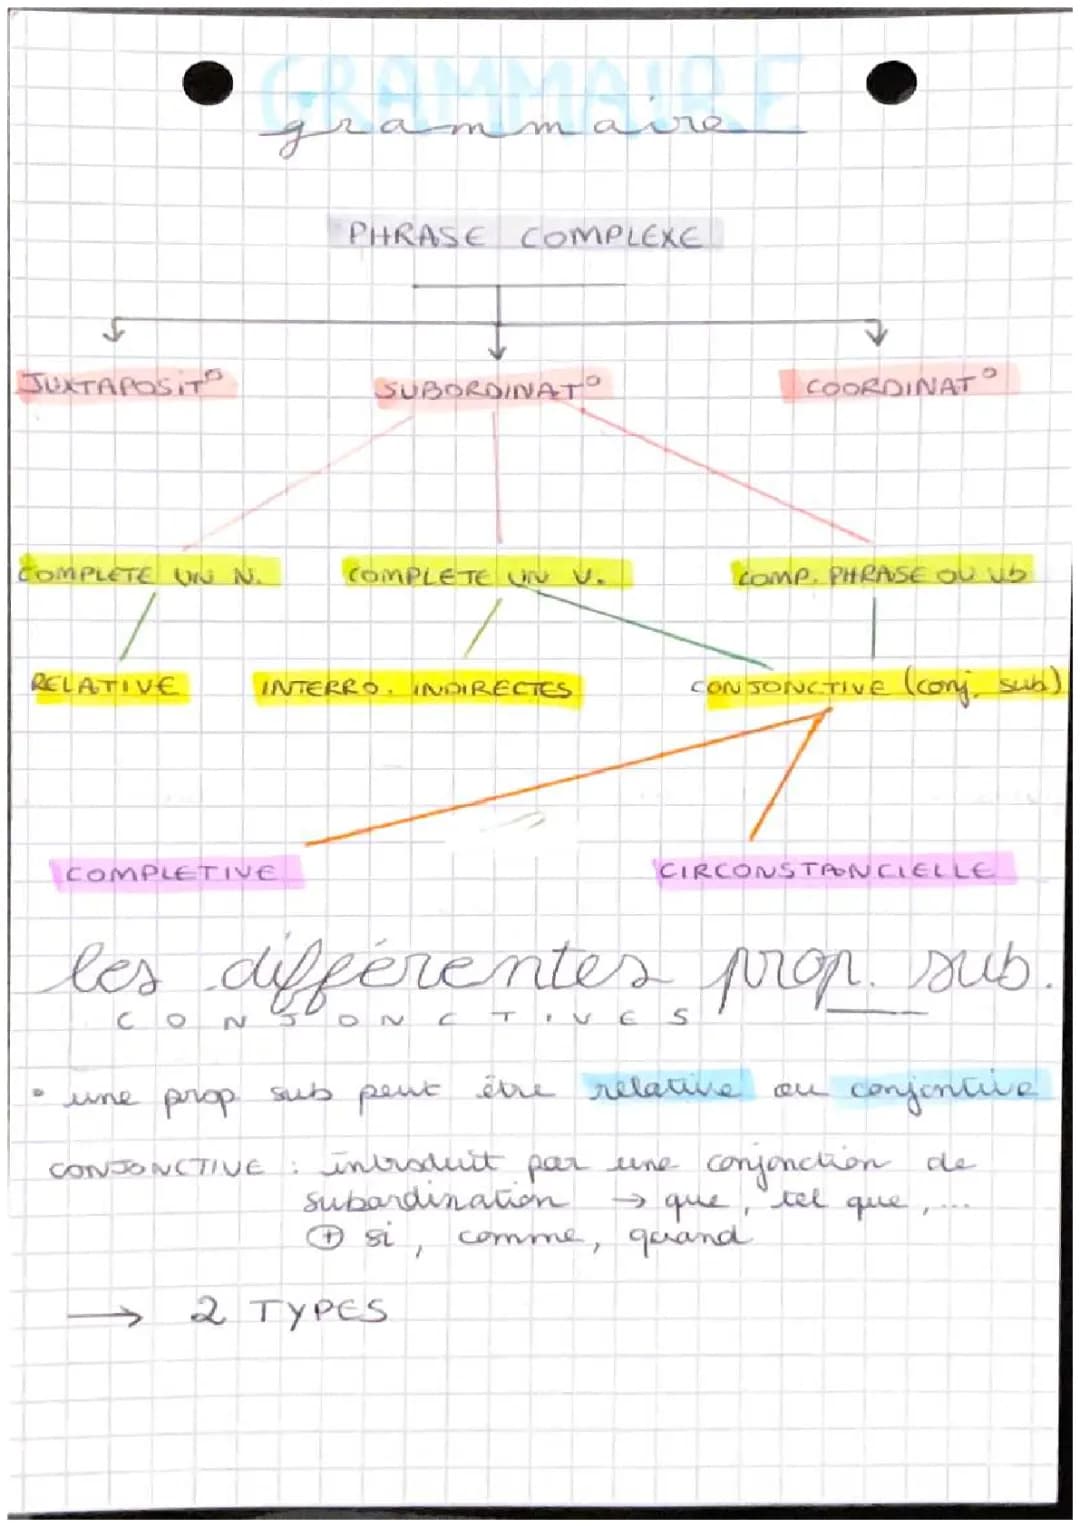 GRAMMAIRE
grammaire
PHRASE COMPLEXE
JUXTAPOSIT° SUBORDINAT° COORDINAT°
COMPLETE UN N. COMPLETE UN V. COMP. PHRASE OU vb
RELATIVE INTERRO. INDIRECTES CONJONCTIVE (conj. sub)
COMPLETIVE CIRCONSTANCIELLE
les différentes prop. sub.
CONJONCTIVES
• une prop sub peut être relative ou conjontive
CONJONCTIVE : introduit par une conjonction de
subordination → que, tel que, ...
⊕ si, comme, quand
→ 2 TYPES